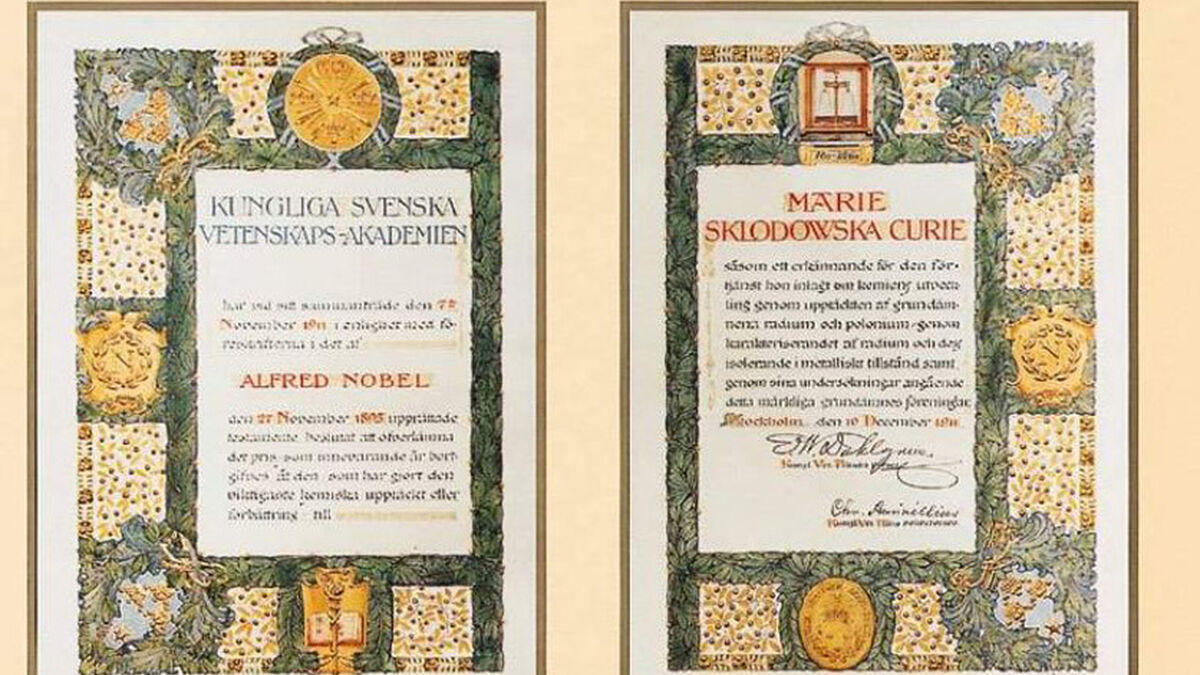 KUNGLIGA SVENSKA
VETENSKAPS-AKADEMIEN
har vid sitt sammanträde den 7de
November 1911 i enlighet med fö-
reskrifterna i det af
ALFRED NOBEL
den 27 November 1895 upprättade
testamente beslutat att öfverlämna
det pris som innevarande år bort-
gifves åt den som har gjort den
viktigaste kemiska upptäckt eller
förbättring till
MARIE
SKLODOWSKA CURIE
såsom ett erkännande för den för-
tjänst hon inlagt om kemiens utveck-
ling genom upptäckten af grundäm-
nena radium och polonium genom
karakteriserandet af radium och dess
isolerande i metalliskt tillstånd samt
genom sina undersökningar angående
detta märkliga grundämnes föreningar.
Stockholm den 10 December 1911